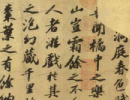 洞庭春色
聞橘中之樂
山豈霜餘
人者遊戲於其
之泡幻藏千里
棗葉之有餘納